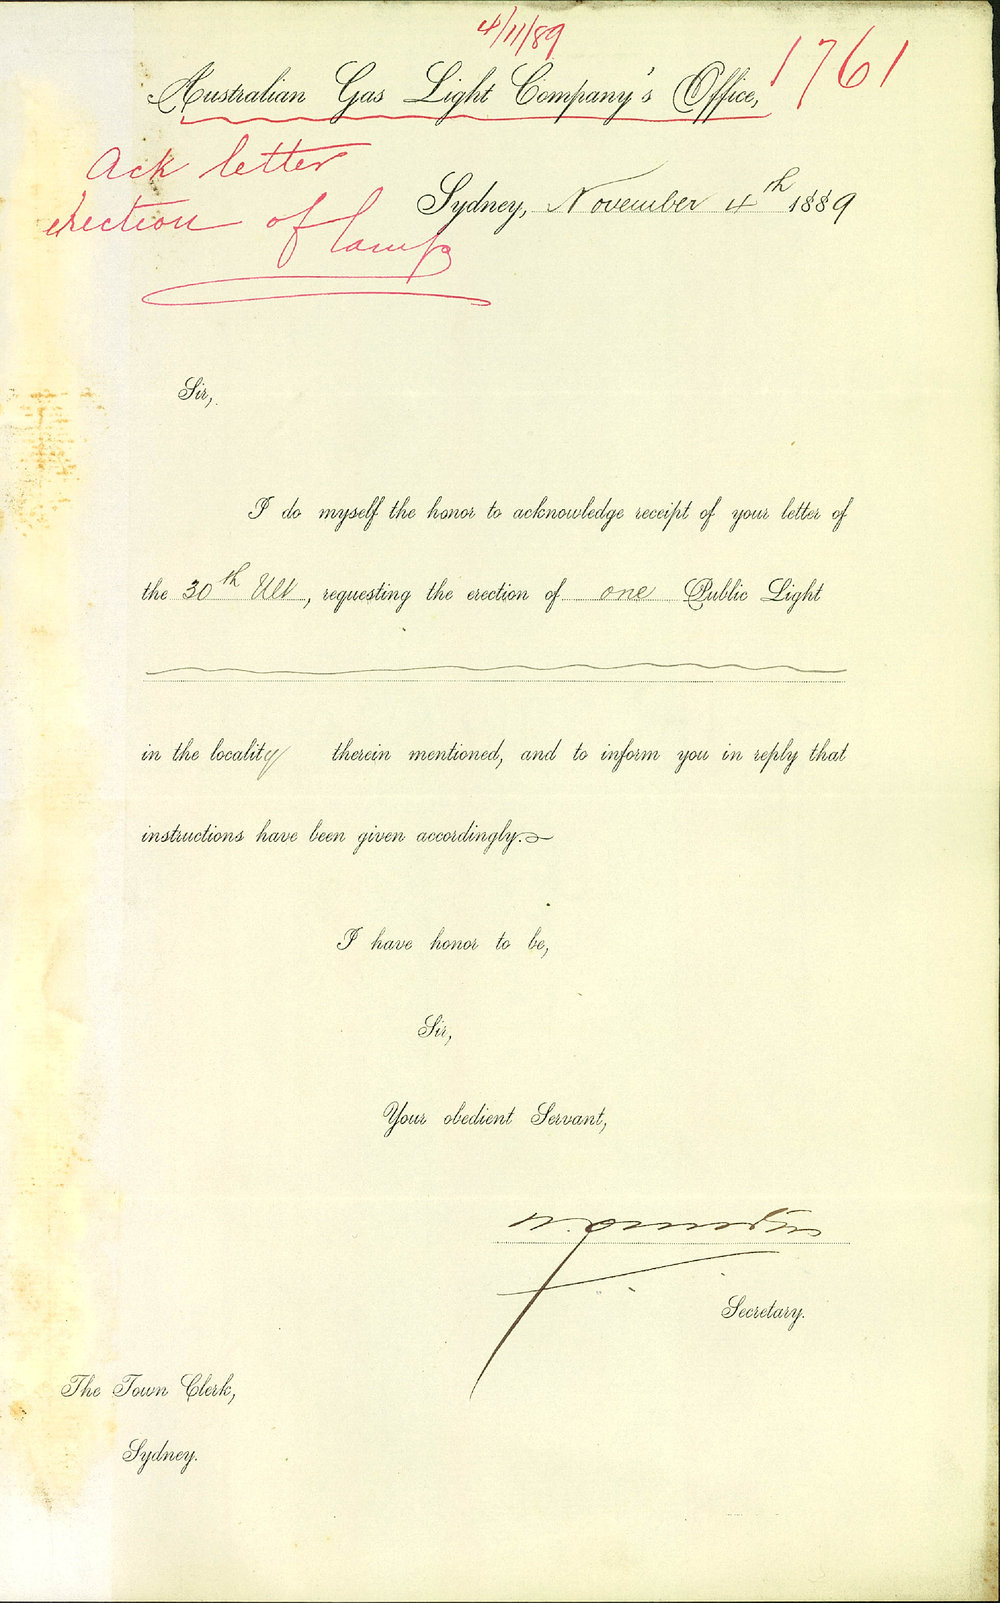 4/11/89
1761
Australian Gas Light Company's Office,
Ack letter
erection of lamp
Sydney, November 4th 1889
Sir,
I do myself the honor to acknowledge receipt of your letter of
the 30th Ult, requesting the erection of one Public Light
in the locality therein mentioned, and to inform you in reply that
instructions have been given accordingly.
I have honor to be,
Sir,
Your obedient Servant,
Secretary.
The Town Clerk,
Sydney.